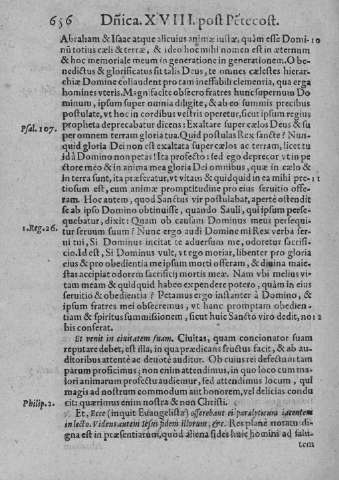 656 Dñica. XVIII. post Pētecost.
Abraham & Isaac atque alicuius animæ iustæ, quàm esse Domi-
nū totius cæli & terræ, & ideo hoc mihi nomen est in æternum
& hoc memoriale meum in generatione in generationem. O be-
nedictus & glorificatus sit talis Deus, te omnes cælestes hierar-
chiæ Domine collaudent pro tam ineffabili clementia, qua erga
homines vteris. Magnificate obsecro fratres hunc supernum Do
minum, ipsum super omnia diligite, & ab eo summis precibus
postulate, vt hoc in cordibus vestris operetur, sicut ipsum regius
propheta deprecabatur dicens: Exaltare super cælos Deus & su
Psal. 107.
per omnem terram gloria tua. Quid postulas Rex sancte? Nun-
quid gloria Dei non est exaltata super cælos ac terram, licet tu
id à Domino non petas? Ita profectò: sed ego deprecor vt in pe
ctore meo & in anima mea gloria Dei omnibus, quæ in cælo &
in terra sunt, ita præferatur, vt vitam & quidquid in ea mihi pre-
tiosum est, cum animæ promptitudine pro eius seruitio offe-
ram. Hoc autem, quod Sanctus vir postulabat, apertè ostendit
se ab ipso Domino obtinuisse, quando Sauli, qui ipsum perse-
quebatur, dixit: Quam ob causam Dominus meus persequi-
1. Reg. 26.
tur seruum suum? Nunc ergo audi Domine mi Rex verba ser-
ui tui, Si Dominus incitat te aduersum me, odoretur sacrifi-
cio. Id est, Si Dominus vult, vt ego moriar, libenter pro gloria
eius & pro obedientia me ipsum morti offeram, & diuina maie-
stas accipiat odorem sacrificij mortis meæ. Nam vbi melius vi-
tam meam & quidquid habeo expendere potero, quàm in eius
seruitio & obedientia? Petamus ergo instanter à Domino, &
ipsum fratres mei obsecremus, vt hanc promptam obedien-
tiam & spiritus summissionem, sicut huic Sancto viro dedit, no
bis conferat.
Et venit in ciuitatem suam. Ciuitas, quam concionator suam
reputare debet, est illa, in qua prædicans fructus facit, & ab au-
ditoribus attentè ac deuotè auditur. Ob cuius rei defectum tam
parum proficimus; non enim attendimus, in quo loco cum ma-
iori animarum profectu audiemur, sed attendimus locum, qui
magis ad nostrum commodum aut honorem, vel delicias condu
cit: quærimus enim nostra & non Christi.
Philip. 2.
Et, Ecce (inquit Euangelista) offerebant ei paralyticum iacentem
in lecto. Videns autem Iesus fidem illorum, &c. Res planè notatu di-
gna est in præsentiarum, quòd aliena fides huic homini ad salu-
tem